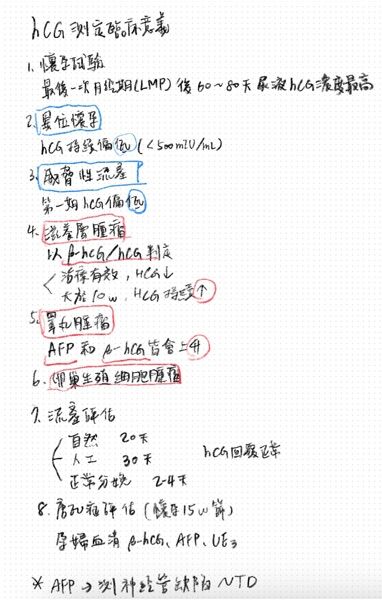 hCG 測定臨床意義
1. 懷孕試驗
最後一次月經期(LMP)後60~80天尿液hCG濃度最高
2. 異位懷孕
hCG 持續偏低 (<500mIU/mL)
3. 脅性流產
第一期hCG偏低
4. 滋養層腫瘤
以 β-hCG/hCG 判定
治療有效，HCG↓
大於10w，HCG持續↑
5. 睪丸腫瘤
AFP 和 β-hCG 皆會上升
6. 卵巢生殖細胞腫瘤
7. 流產評估
自然 20天
人工 30天 hCG回復正常
正常分娩 2-4天
8. 唐氏症評估 (懷孕15w篩)
孕婦血清 β-hCG、AFP、UE3
* AFP → 測神經管缺陷 NTD